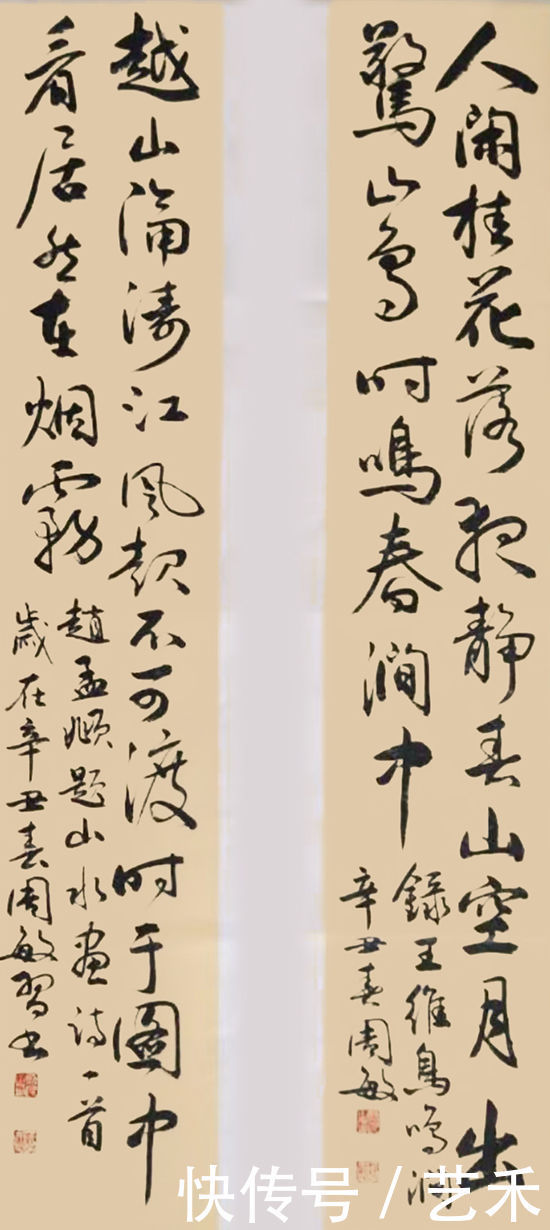 人閑桂花落夜靜春山空月出
驚山鳥时鳴春澗中
錄王維鳥鳴澗
辛丑春周敏
越山隔濤江風起不可渡时于圖中
看居然在烟霧
趙孟頫題山水畫詩一首
歲在辛丑春周敏習书
快传号/艺禾